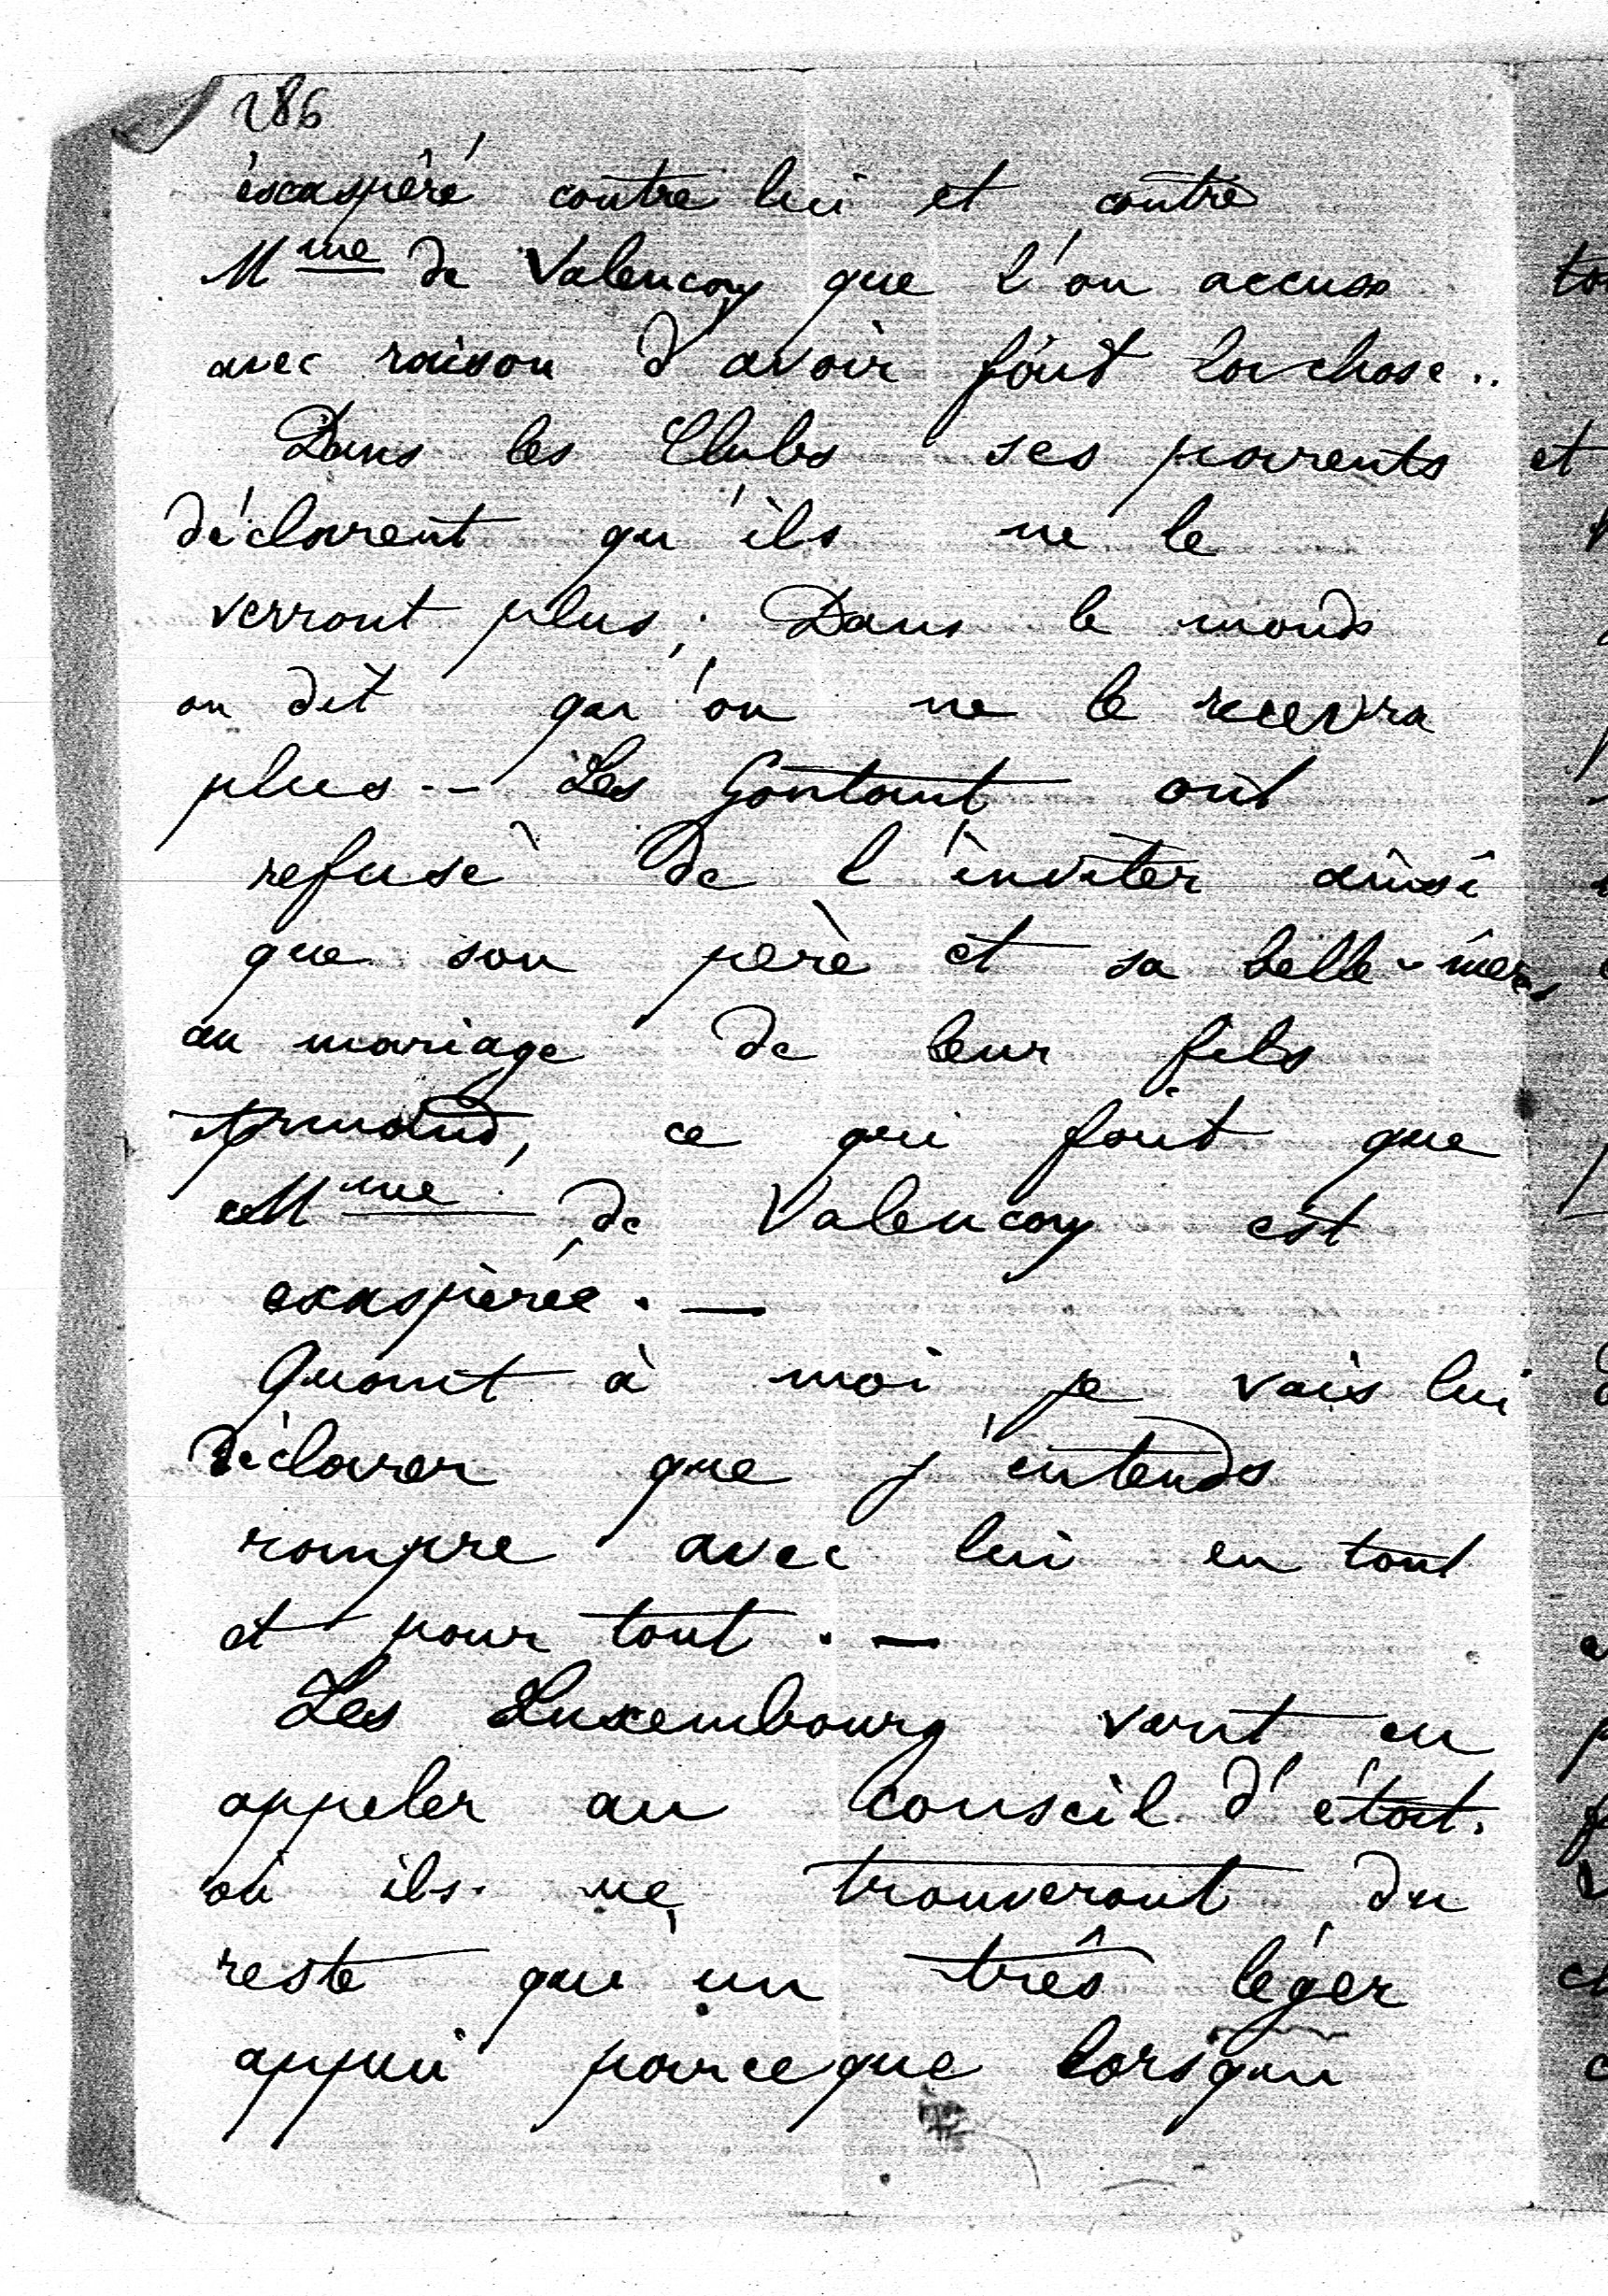 286
éxaspéré contre lui et contre
Mme de Valencay que l'on accuse
avec raison d'avoir fait la chose..
Dans les Clubs ses parents
déclarent qu'ils ne le
verront plus; Dans le monde
on dit qu'on ne le recevra
plus.- Les Gontaut ont
refusé de l'inviter ainsi
que son père et sa belle-mère
au mariage de leur fils
Armand, ce qui fait que
Mme de Valencay est
exaspérée. —
Quant à moi je vais lui
déclarer que j'entends
rompre avec lui en tout
et pour tout. —
Les Luxembourg vont en
appeler au Conseil d'état.
où ils ne trouveront du
reste qu'un très léger
appui parceque lorsqu'
et